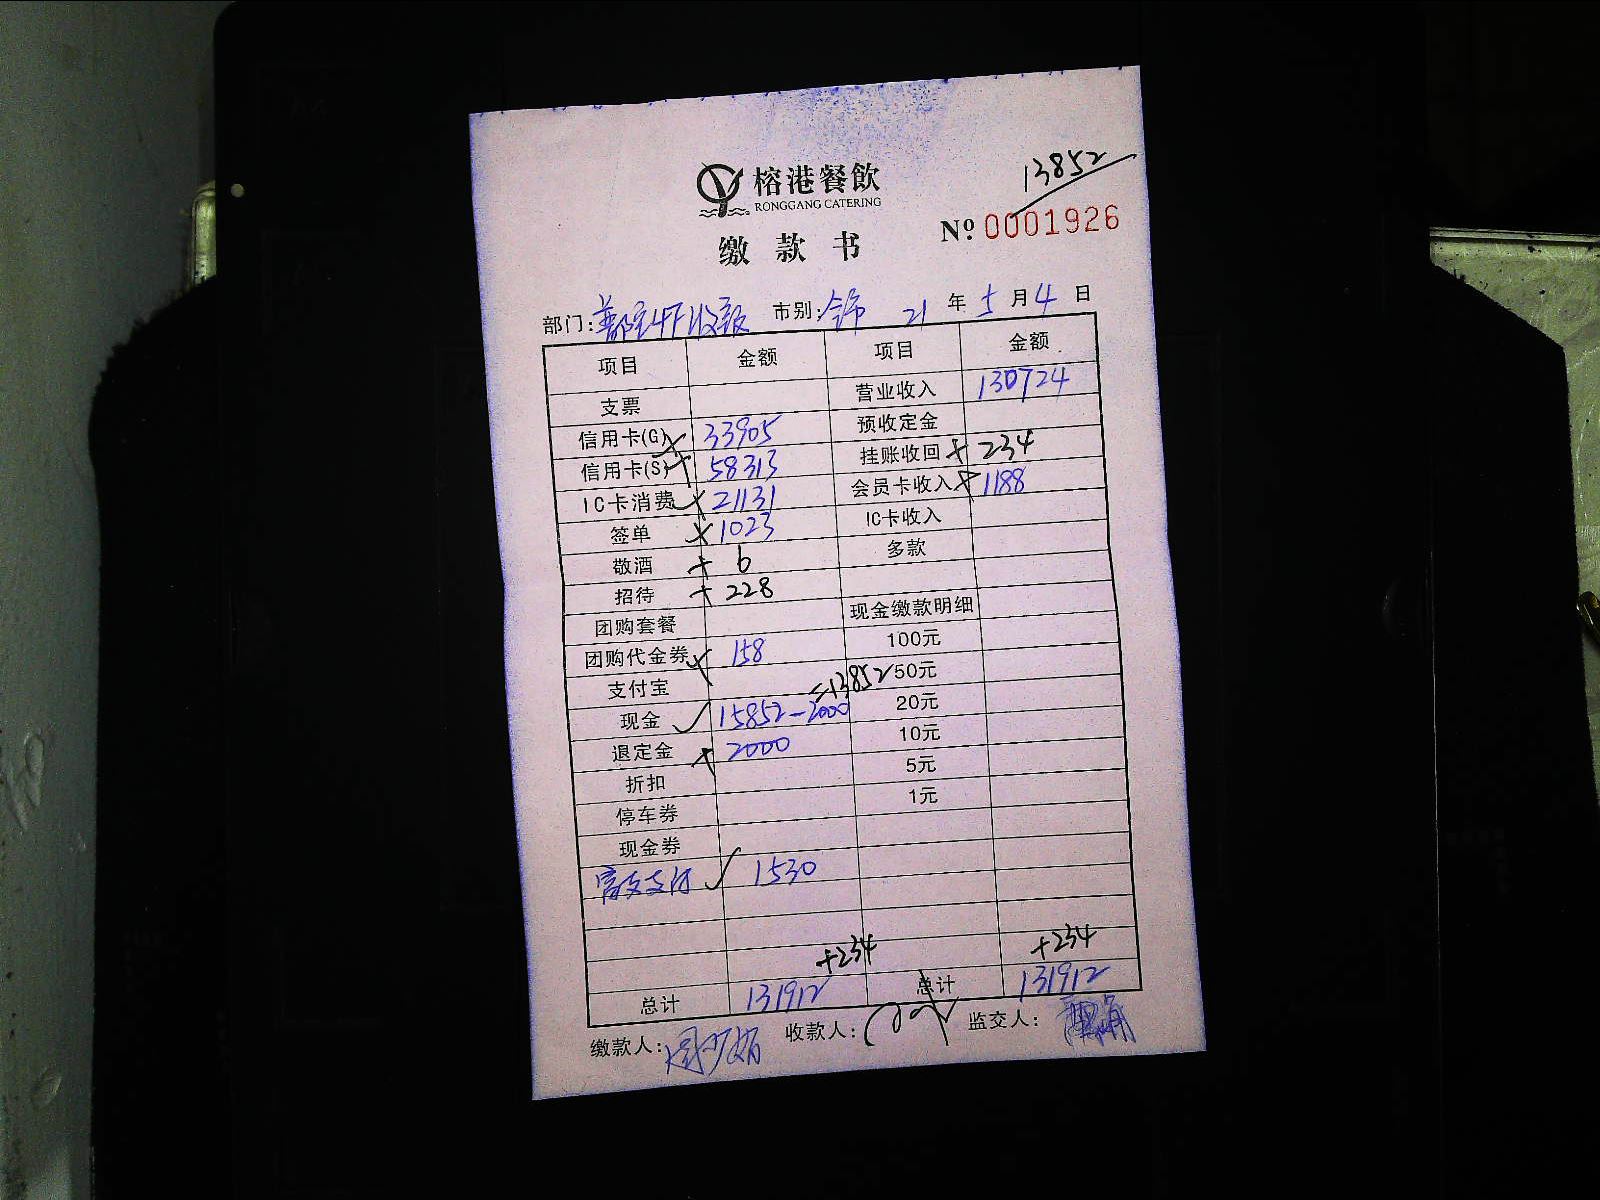 13852
榕港餐飲
RONGGANG CATERING
№ 0001926
缴款书
部门: 4F收款 市别: 全市 21年5月4日
项目 金额 项目 金额
支票 营业收入 130724
信用卡(G) 33905 预收定金
信用卡(S) 58313 挂账收回 + 234
IC卡消费 21131 会员卡收入 1188
签单 1023 IC卡收入
敬酒 + 6 多款
招待 + 228
团购套餐 现金缴款明细
团购代金券 158 100元
支付宝 50元
=13852
现金 ✓ 15852-2000 20元
退定金 2000 10元
折扣 5元
停车券 1元
现金券
支付 ✓ 1530
+234 +234
总计 131912 总计 131912
缴款人: 收款人: 监交人: